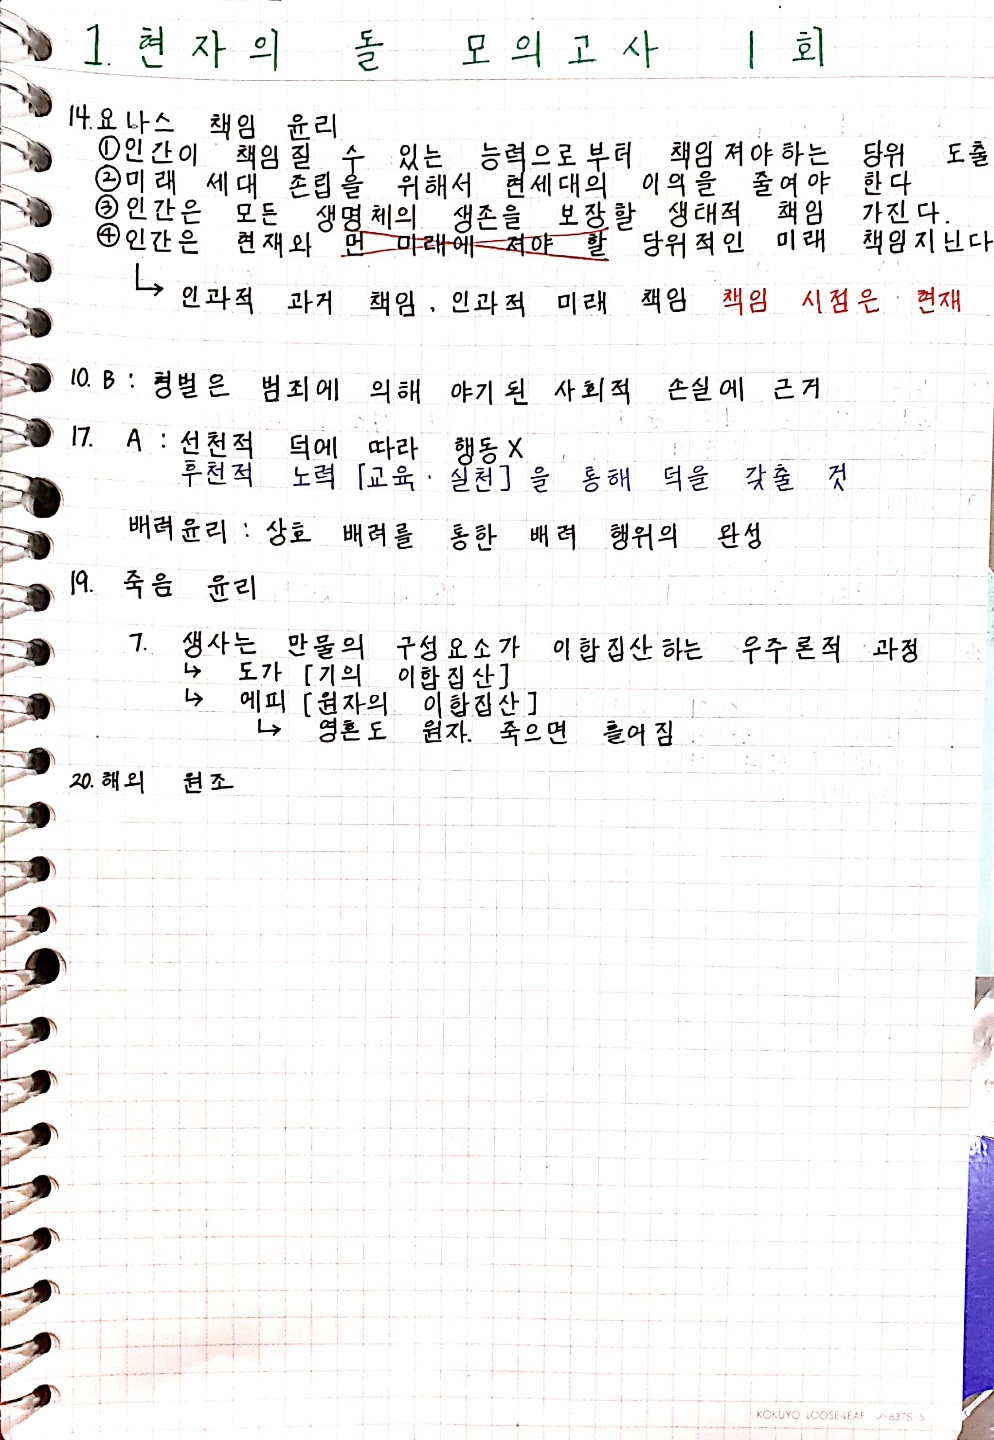 1. 현자의 돌 모의고사 1회
14. 요나스 책임 윤리
①인간이 책임질 수 있는 능력으로부터 책임져야하는 당위 도출
②미래 세대 존립을 위해서 현세대의 이익을 줄여야 한다
③인간은 모든 생명체의 생존을 보장할 생태적 책임 가진다.
④인간은 현재와 먼 미래에 져야 할 당위적인 미래 책임지닌다
↳ 인과적 과거 책임, 인과적 미래 책임 책임 시점은 현재
10. B : 형벌은 범죄에 의해 야기된 사회적 손실에 근거
17. A : 선천적 덕에 따라 행동 X
후천적 노력 [교육·실천]을 통해 덕을 갖출 것
배려윤리 : 상호 배려를 통한 배려 행위의 완성
19. 죽음 윤리
7. 생사는 만물의 구성요소가 이합집산하는 우주론적 과정
↳ 도가 [기의 이합집산]
↳ 에피 [원자의 이합집산]
↳ 영혼도 원자. 죽으면 흩어짐
20. 해외 원조
KOKUYO LOOSE-LEAF ノ-837S-5